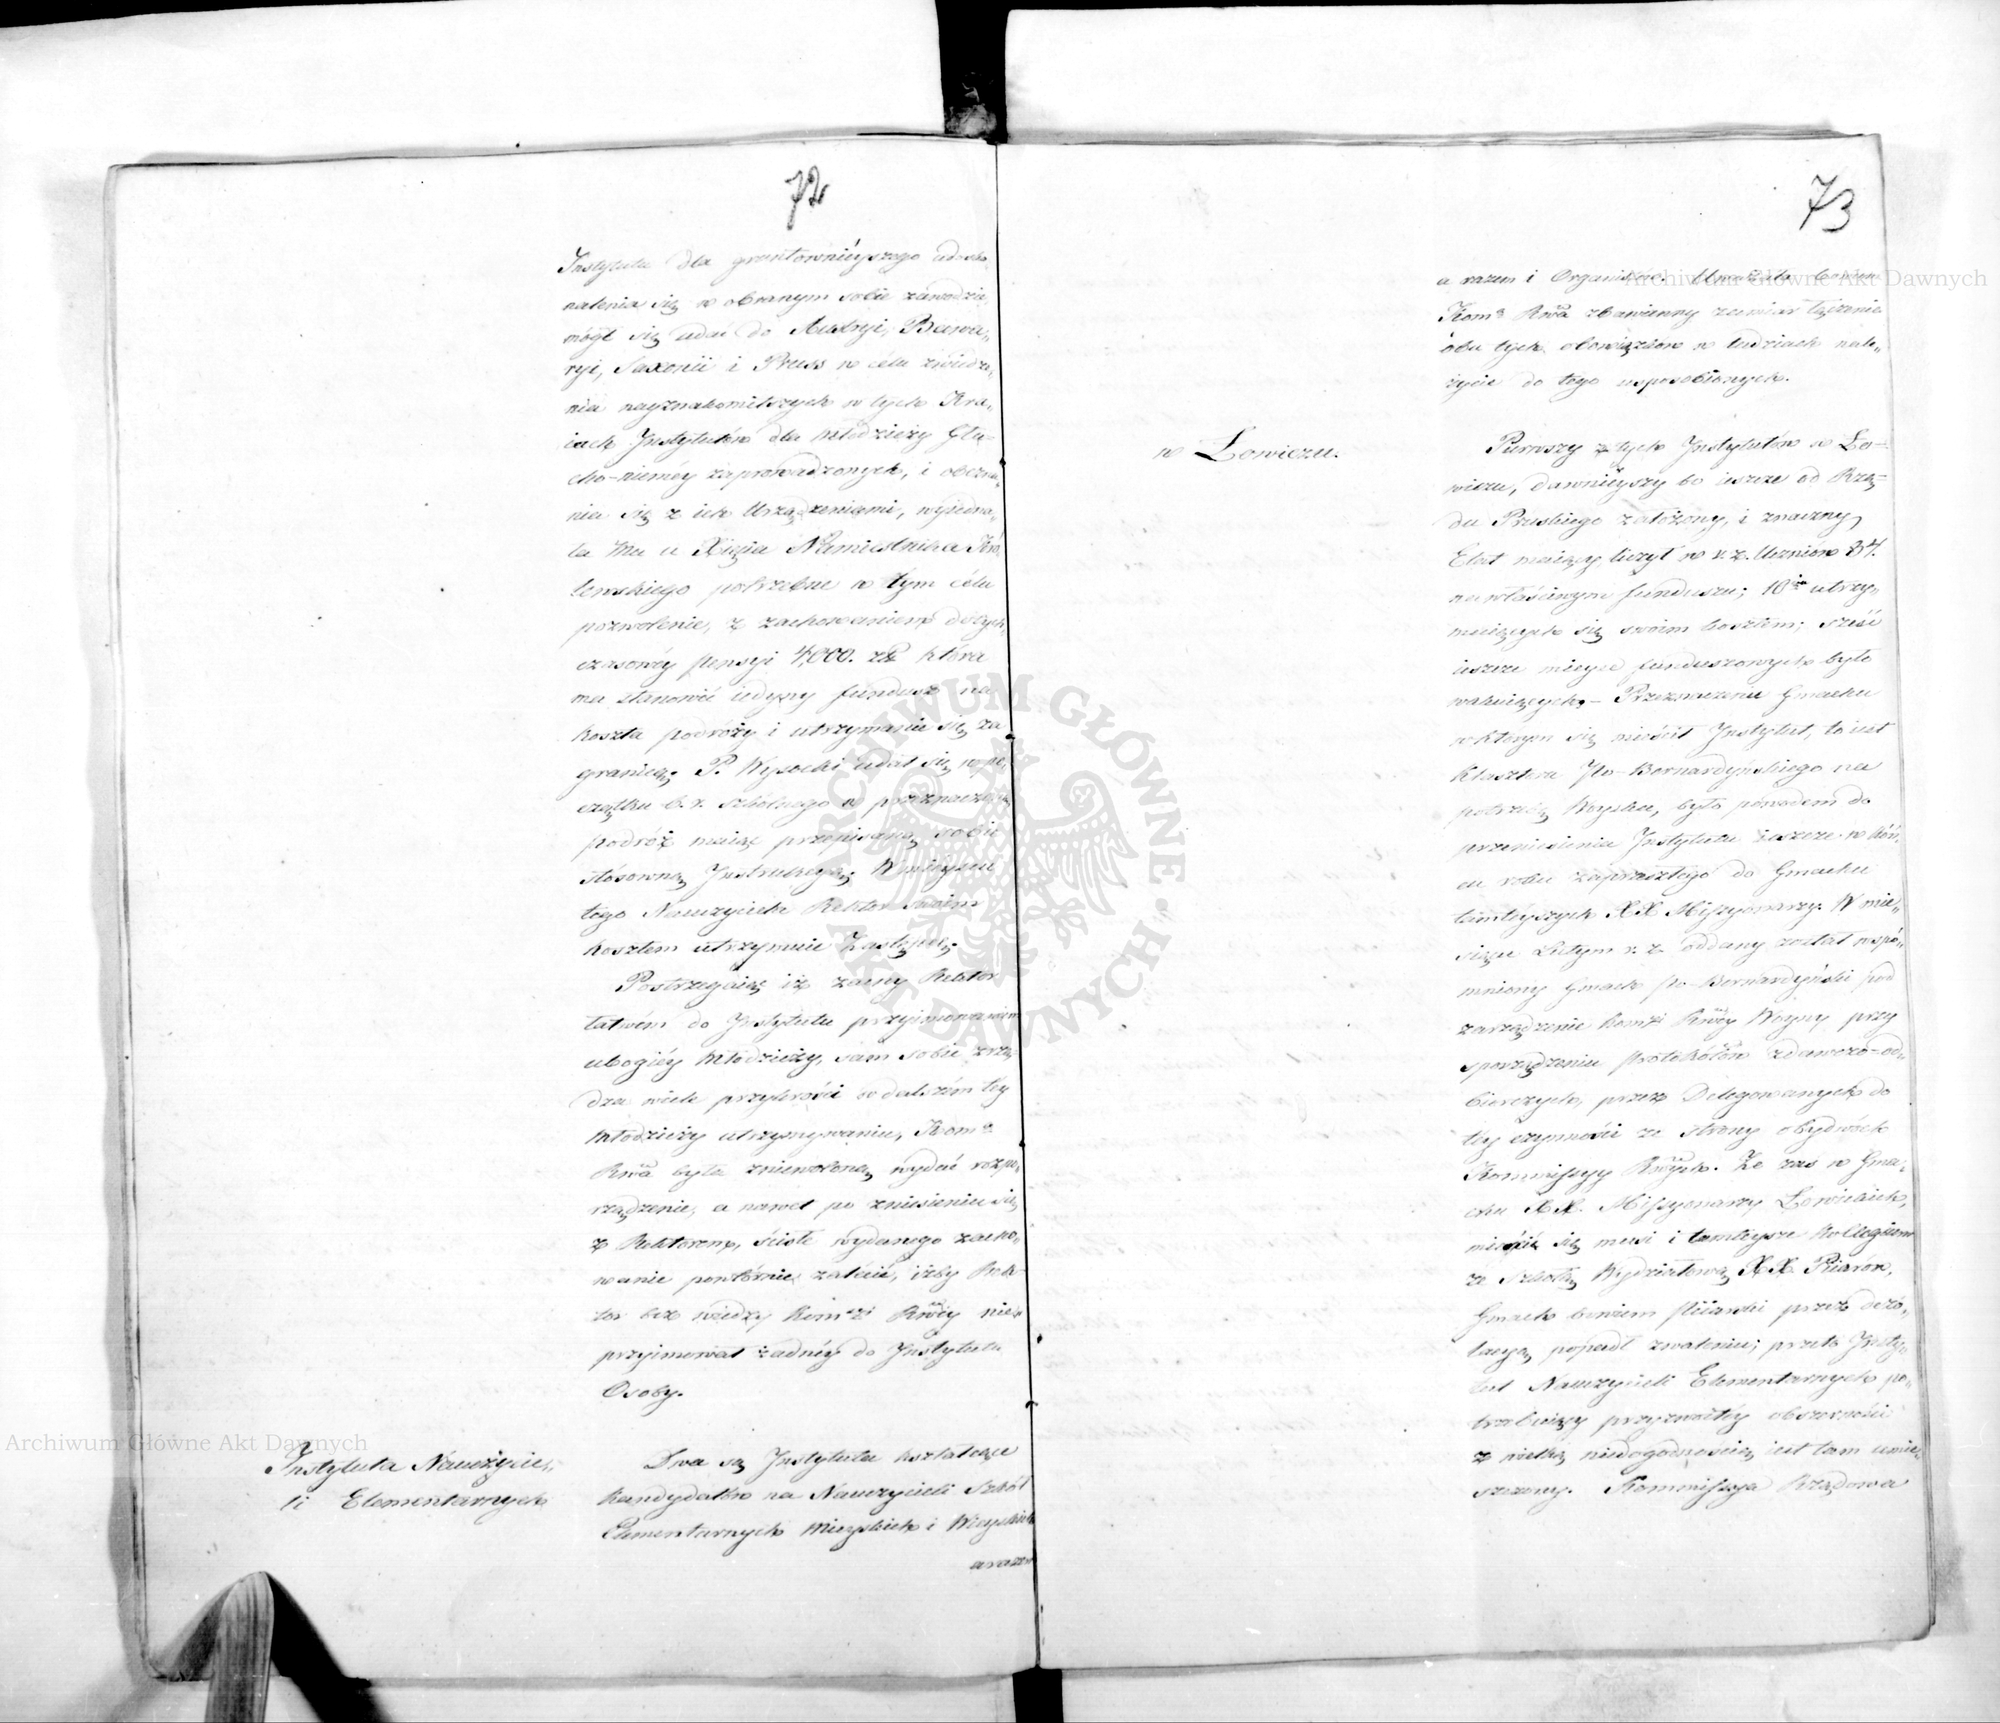 72
Instytutu dla gruntownieyszego udosko,
nalenia się w obranym sobie zawodzie,
mógł się udać do Austryi, Bawa,
ryi, Saxonii i Pruss w celu zwiedze,
nia nayznakomitszych w tych Kra,
iach Instytutów dla Młodzieży Głu-
cho-niemey zaprowadzonych, i obezna,
nia się z ich Urządzeniami, wyiedna,
ła mu u Xięcia Namiestnika Kró,
lewskiego potrzebne w tym celu
pozwolenie, z zachowaniem dotych,
czasowéy pensyi 4,000. zł która
ma stanowić iedyny fundusz na
koszta podróży i utrzymanie się za
granicą; P. Wysocki udał się w po,
czątku b. r. szkólnego w przeznaczoną
podróż maiąc przepisaną sobie
stósowną Instrukcyą; W mieyscu
tego Nauczyciela Rektor swoim
kosztem utrzymuie Zastępcę.
Postrzegaiąc iż zacny Rektor
łatwém do Instytutu przyimowaniem
ubogiéy Młodzieży, sam sobie zrzą,
dza wiele przykrości w dalszém téy
Młodzieży utrzymywaniu, Kom.a
Rwa była zniewoloną wydać rozpo,
rządzenie, a nawet po zniesieniu się
z Rektorem, ściśle wydanego zacho,
wanie powtórnie zalecić, iżby Rek-
tor bez wiedzy Kom.yi Rwéy nie
przyimował żadnéy do Instytutu
Osoby.
Instytuta Nauczycie,
li Elementarnych
Dwa są Instytuta kształcące
Kandydatów na Nauczycieli Szkół
Elementarnych Mieyskich i Wieyskich
a razem
73
a razem i Organistów. Uważała bowiem
Kom.a Rwa zbawienny zamiar łączenia
obu tych obowiązków w ludziach nale,
życie do tego usposobionych.
w Łowiczu.
Pierwszy z tych Instytutów w Ło-
wiczu, dawnieyszy bo ieszcze od Rzą-
du Pruskiego założony, i znaczny
Etat maiący, liczył w r. z. Uczniów 34.
na właściwym funduszu; 10iu utrzy,
muiących się swoim kosztem; sześć
ieszcze mieysc funduszowych było
wakuiących. – Przeznaczenie Gmachu
w którym się mieścił Instytut, to iest
Klasztoru Po-Bernardyńskiego na
potrzebę Woyska, było powodem do
przeniesienia Instytutu ieszcze w koń,
cu roku zaprzeszłego do Gmachu
tamteyszych XX Missyonarzy. W mie,
siącu Lutym r. z. oddany został wspo,
mniony Gmach po-Bernardyński pod
zarządzenie Kom.yi Rwéy Woyny przy
sporządzeniu protokółów zdawczo-od,
biorczych, przez Delegowanych do
téy czynności ze strony obydwóch
Kommissyy Rwych. Że zaś w Gma,
chu XX. Missyonarzy Łowickich,
mieścić się musi i tamteysze Kollegium
ze Szkołą Wydziałową XX. Piiarów,
Gmach bowiem Piiarski przez dezo,
lacyą popadł zwaleniu; przeto Insty,
tut Nauczycieli Elementarnych po,
trzebuiący przyzwoitéy obszerności
z wielką niedogodnością iest tam umie,
szczony. Kommissya Rządowa